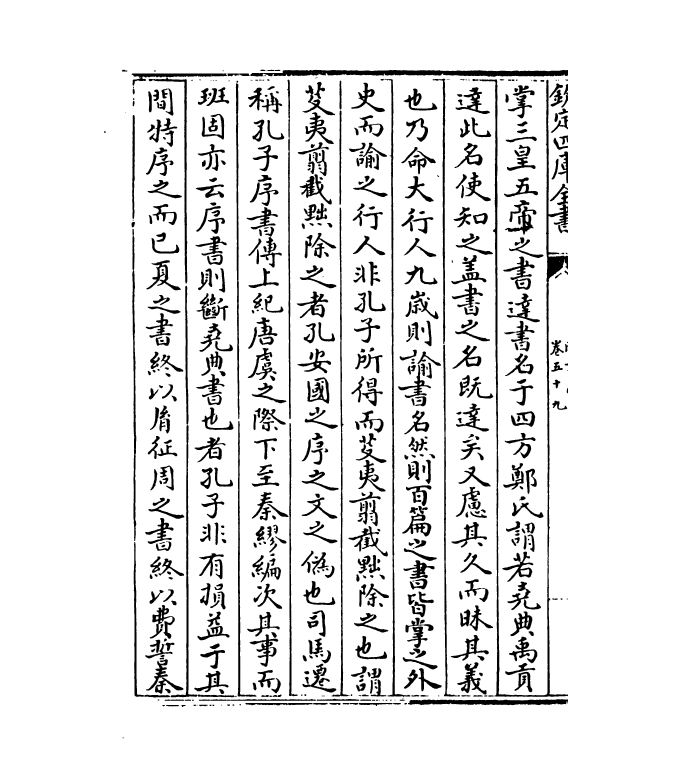 欽定四庫全書
卷五十九
掌三皇五帝之書達書名于四方鄭氏謂若堯典禹貢
達此名使知之盖書之名既達矣又慮其久而昧其義
也乃命大行人九歲則諭書名然則百篇之書皆掌之外
史而諭之行人非孔子所得而芟夷翦截黜除之也謂
芟夷翦截黜除之者孔安國之序之文之偽也司馬遷
稱孔子序書傳上紀唐虞之際下至秦繆編次其事而
班固亦云序書則斷堯典書也者孔子非有損益于其
間特序之而已夏之書終以胤征周之書終以費誓秦